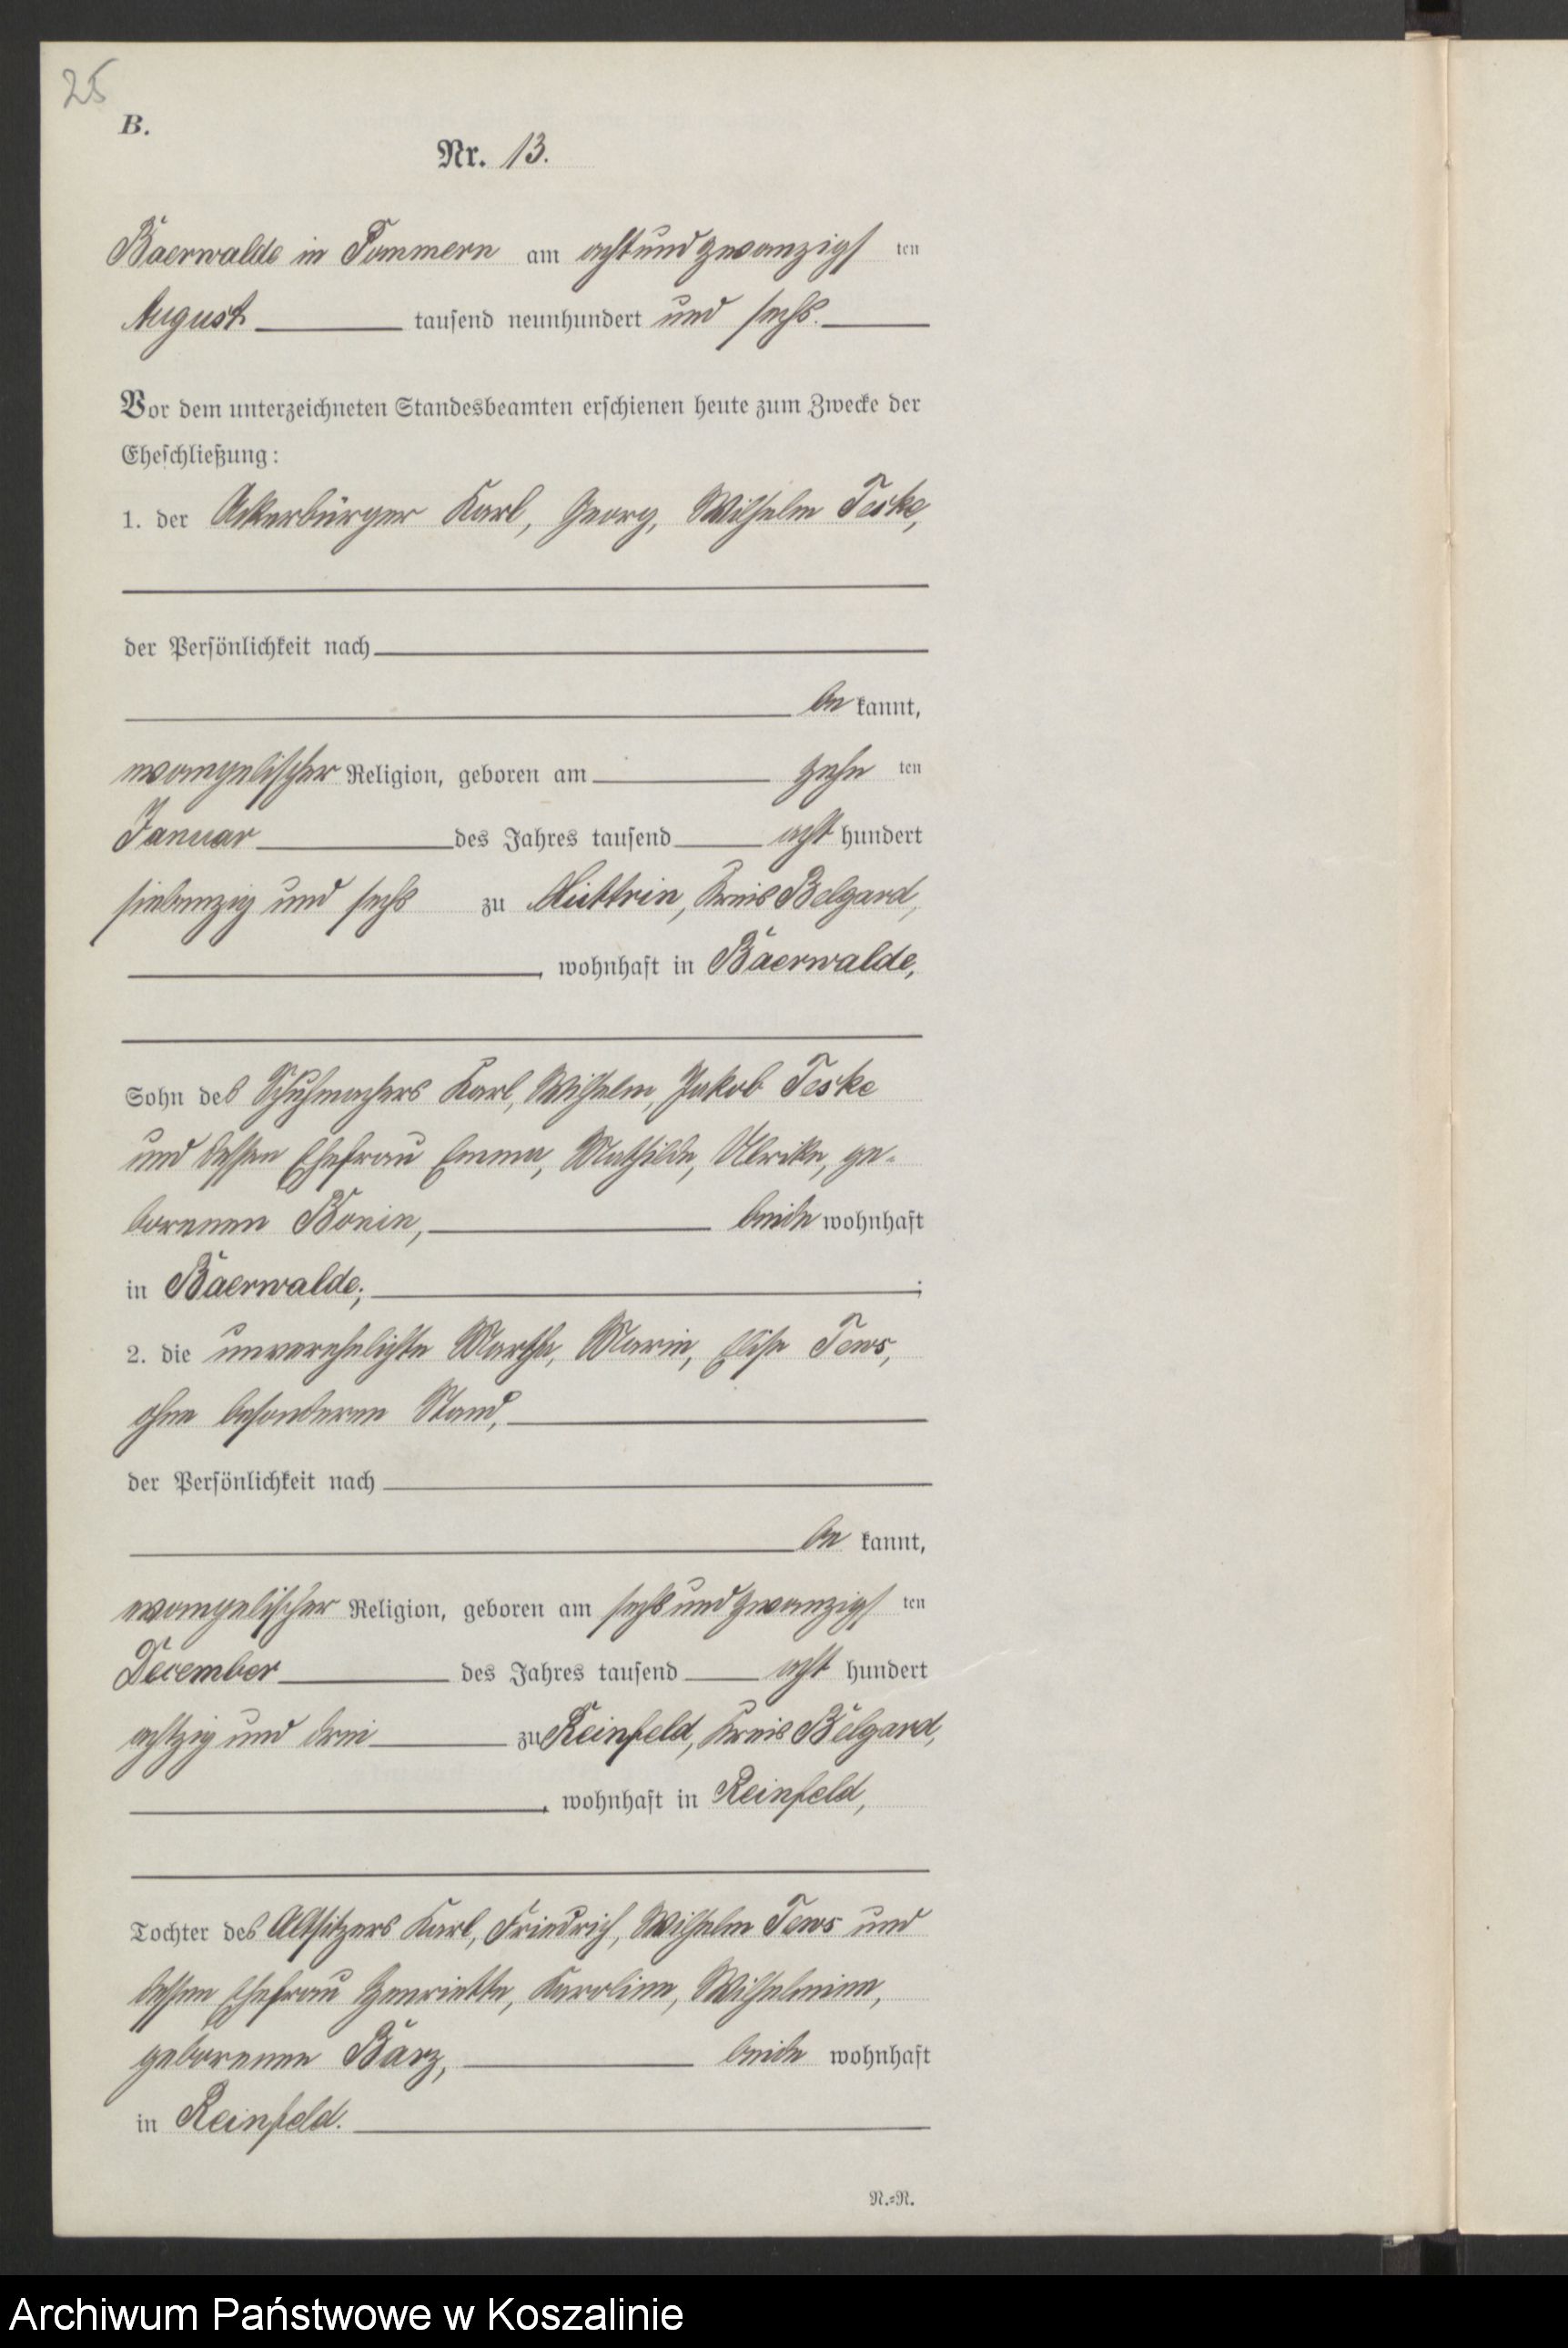 25
B.
Nr. 13.
Baerwalde in Pommern am achtundzwanzigsten
August tausend neunhundert und sechs.
Vor dem unterzeichneten Standesbeamten erschienen heute zum Zwecke der
Eheschließung:
1. der Ackerbürger Karl, Georg, Wilhelm Teske,
der Persönlichkeit nach
be kannt,
evangelischer Religion, geboren am zehn ten
Januar des Jahres tausend acht hundert
siebenzig und sechs zu Muttrin, Kreis Belgard,
, wohnhaft in Baerwalde,
Sohn des Schuhmachers Karl, Wilhelm, Jakob Teske
und dessen Ehefrau Emma, Mathilde, Ulrike, ge-
borenen Bonin, beide wohnhaft
in Baerwalde; ;
2. die unverehelichte Martha, Marie, Elise Tews,
ohne besonderen Stand,
der Persönlichkeit nach
be kannt,
evangelischer Religion, geboren am sechsundzwanzigsten
December des Jahres tausend acht hundert
achtzig und drei zu Reinfeld, Kreis Belgard,
, wohnhaft in Reinfeld,
Tochter des Altsitzers Karl, Friedrich, Wilhelm Tews und
dessen Ehefrau Henriette, Karoline, Wilhelmine,
geborenen Bärz, beide wohnhaft
in Reinfeld.
N.=N.
Archiwum Państwowe w Koszalinie